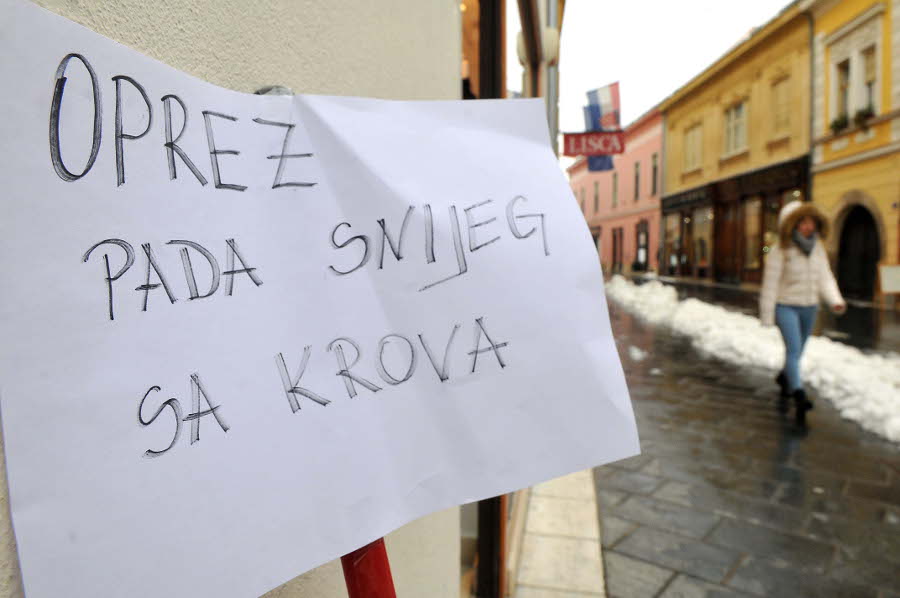 OPREZ
PADA SNIJEG
SA KROVA
LISCA